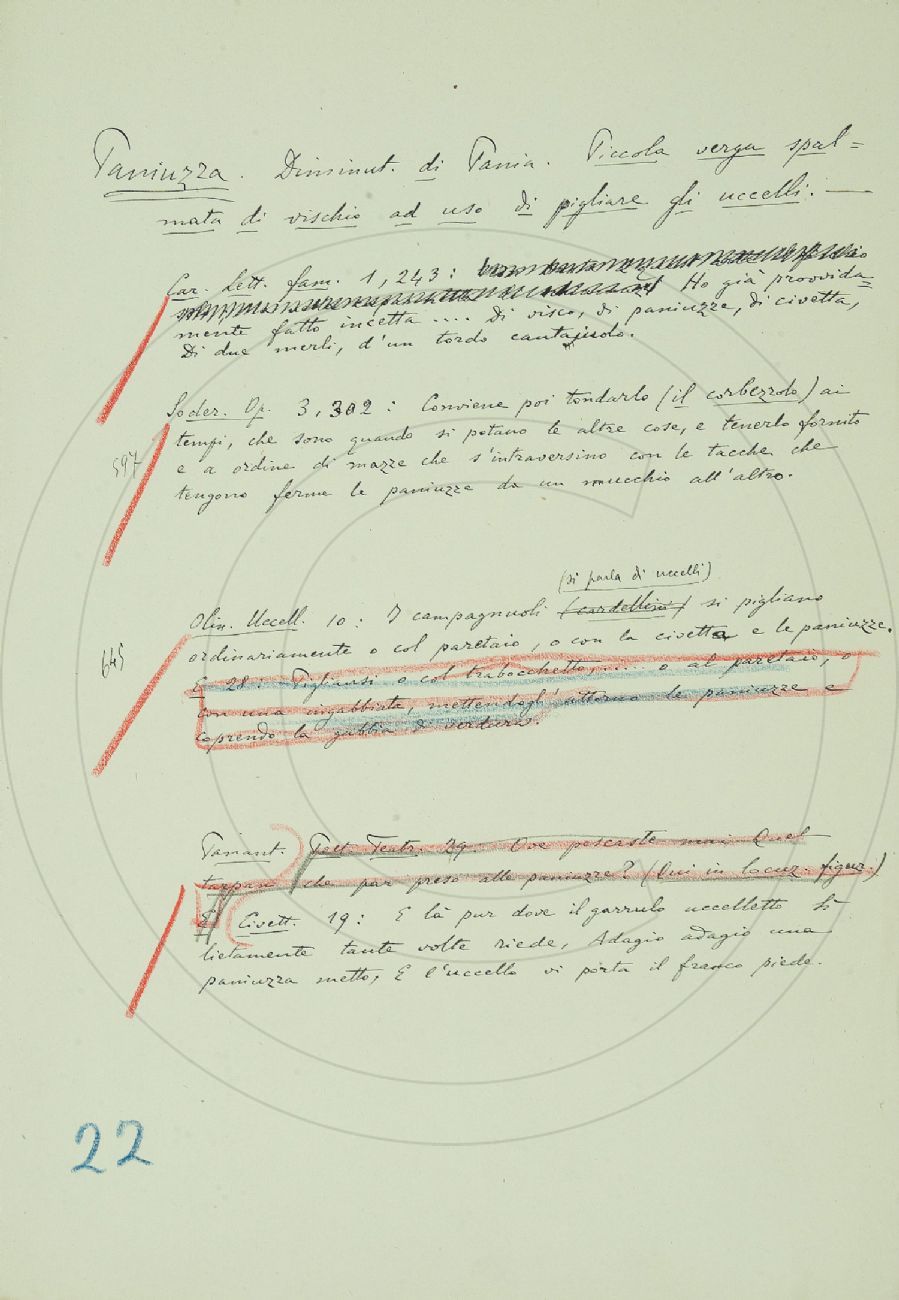 Paniuzza. Diminut. di Pania. Piccola verga spal=
mata di vischio ad uso di pigliare gli uccelli. —
Car. Lett. fam. 1, 243:
Ho già provvida=
mente fatto incetta .... Di visco, di paniuzze, di civetta,
Di due merli, d'un tordo cantaiuolo.
Soder. Op. 3, 302: Conviene poi tondarlo (il corbezzolo) ai
tempi, che sono quando si potano le altre cose, e tenerlo fornito
597
e a ordine di mazze che s'intraversino con le tacche che
tengono ferme le paniuzze da un mucchio all'altro.
(si parla di uccelli)
Olin. Uccell. 10: I campagnuoli (cardellini) si pigliano
ordinariamente o col paretaio, o con la civetta e le paniuzze.
645
E 28: Pigliansi o col trabocchetto, ... o al paretaio, o
con una ingabbiata, mettendogl' attorno le paniuzze e
coprendo la gabbia di verdura.
Panant. Poet. Teatr. 29: Ove pescaste mai Quel
tarpano che par preso alle paniuzze? (Qui in locuz. figur.)
E Civett. 19: E là pur dove il garrulo uccelletto Sì
lietamente tante volte riede, Adagio adagio una
paniuzza metto, E l'uccello vi porta il franco piede.
22